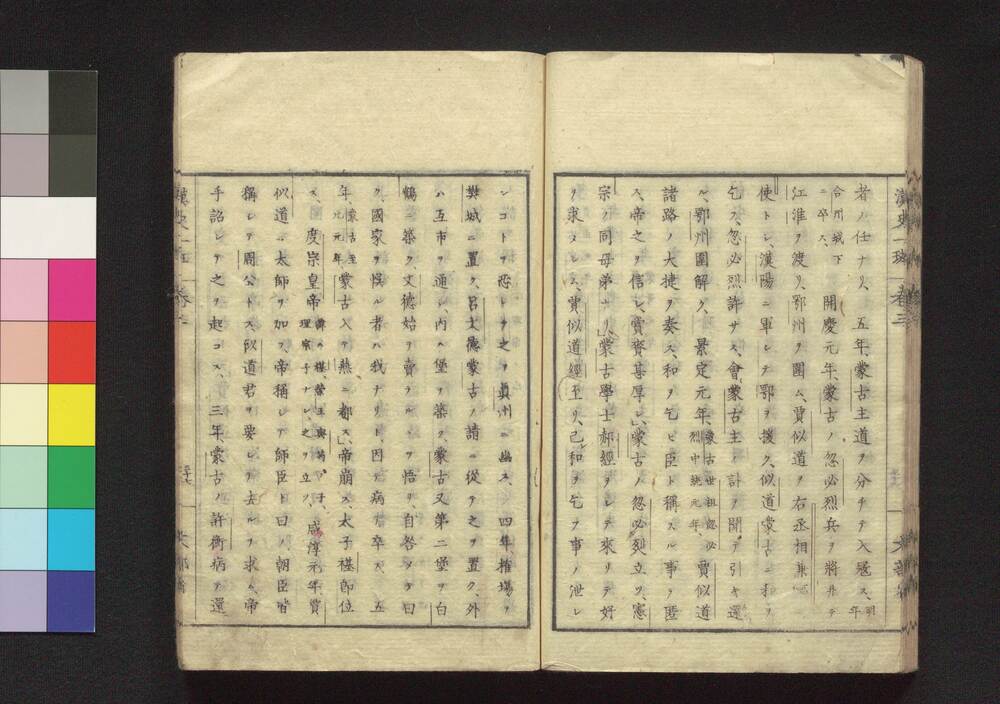 者ノ任ナリ、五年、蒙古主道ヲ分チテ入冦ス、明年
合州城下ニ卒ス、開慶元年、蒙古ノ忽必烈兵ヲ將井テ
江淮ヲ渡リ、鄂州ヲ圍ム、賈似道ヲ右丞相兼
使トレ、漢陽ニ軍レテ鄂ヲ援ク、似道蒙古ニ和ヲ
乞フ、忽必烈許サス、會蒙古主ノ訃ヲ聞テ引キ還
ル、鄂州圍解ク、景定元年、蒙古世祖忽必烈中統元年、賈似道
諸路ノ大捷ヲ奏ス、和ヲ乞ヒ臣ト稱スル事ヲ匿
ス、帝之ヲ信レ、賞賚甚厚レ、蒙古ノ忽必烈立ツ、憲
宗ノ同母弟ナリ、蒙古學士郝經ヲレテ來リテ好
ヲ求メレム、賈似道經至リ、己レ和ヲ乞フ事ノ泄レ
ンコトヲ恐レテ之ヲ眞州ニ幽ス、四年、榷場ヲ
樊城ニ置ク、呂文德蒙古ノ請ニ從テ之ヲ置ク、外
ハ互市ヲ通レ、内ハ堡ヲ築ク、蒙古又第二堡ヲ白
鶴ニ築ク、文德始ヲ賣ラルヽヲ悟リ、自咎メテ曰
ク、國家ヲ誤ル者ハ我ナリト、因テ病テ卒ス、五
年、蒙古至元元年、蒙古入テ燕ニ都ス、帝崩ス、太子禥即位
ス、度宗皇帝諱ハ禥、榮王與芮ノ子、理宗子ナレ、之ヲ立ツ、咸淳元年、賈
似道ニ太師ヲ加フ、帝稱レテ師臣ト曰ヒ、朝臣皆
稱レテ周公トス、似道君ヲ要レテ去ルヲ求ム、帝
手詔レテ之ヲ起コス、三年、蒙古ノ許衡病テ還